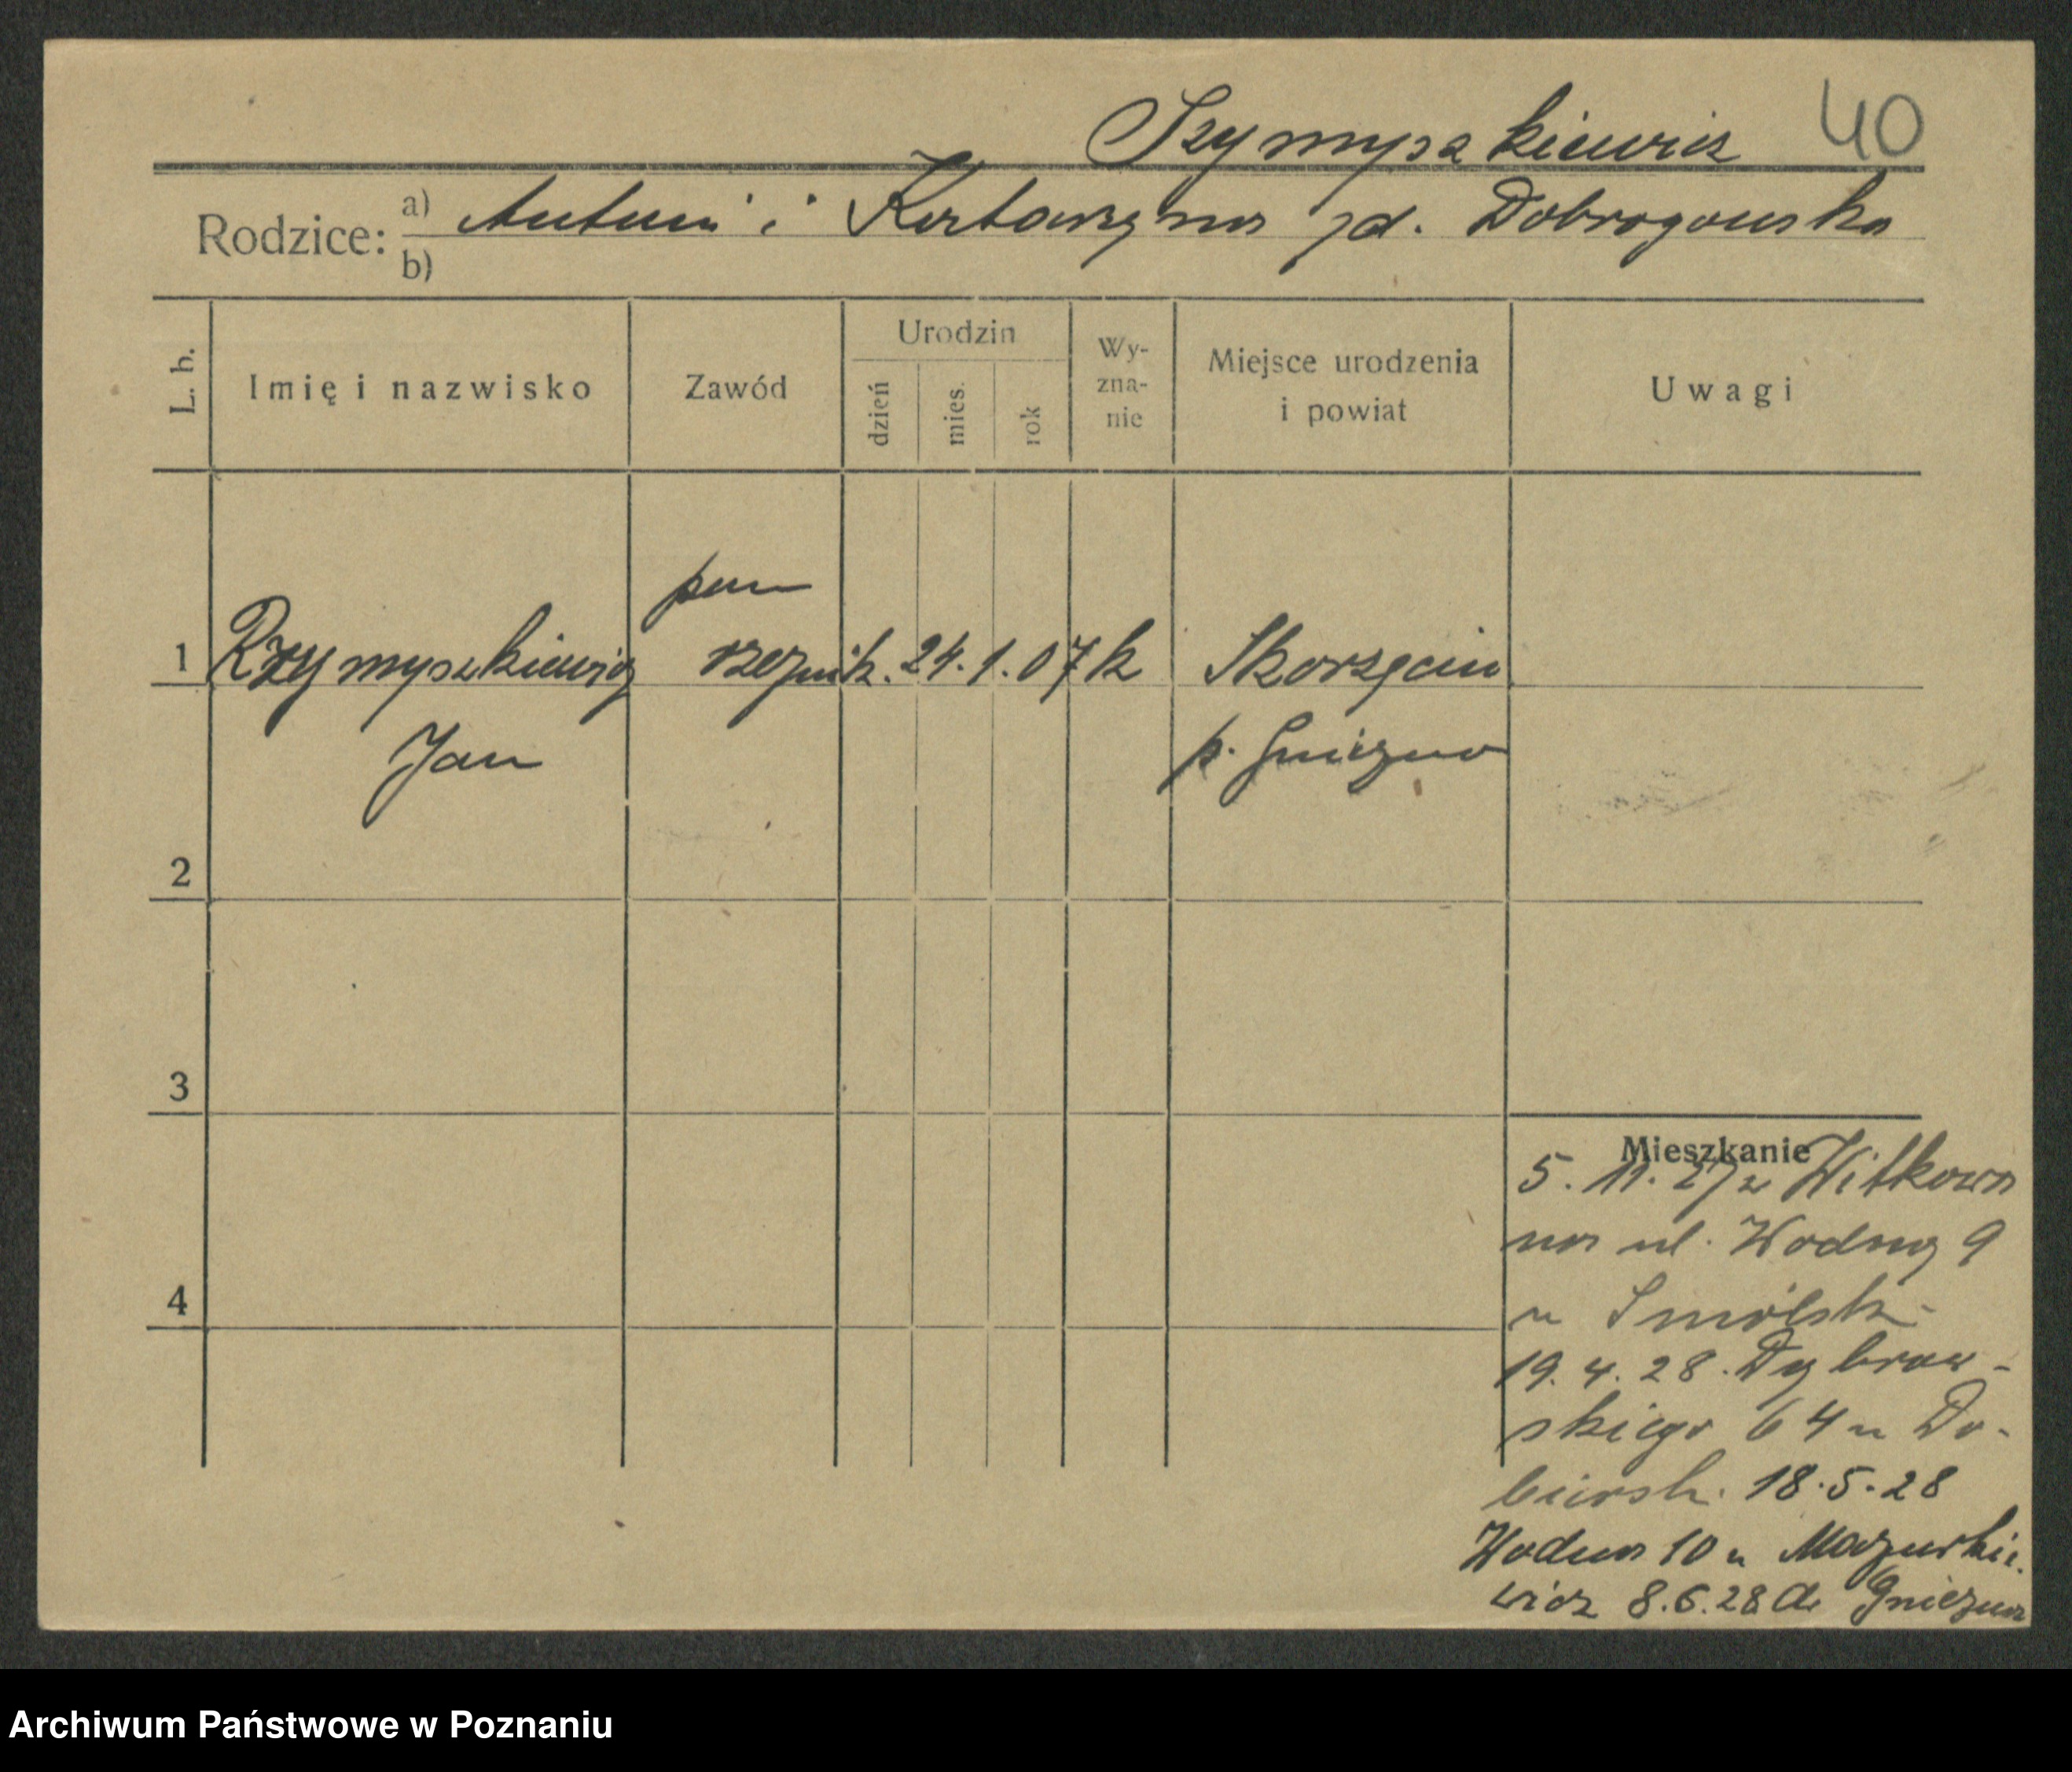 Szymyszkiewicz 40
Rodzice: a) Antoni i Katarzyna zd. Dobrogowska
b)
L. b. Imię i nazwisko Zawód Urodzin dzień mies. rok Wy-zna-nie Miejsce urodzenia i powiat Uwagi
pan
1 Rzymyszkiewicz rzeznik. 24. 1. 07 k Skorzęcin
Jan p. Gniezno
2
3
4
Mieszkanie
5. 11. 27 z Witkowa
na ul. Wodną 9
u Smólsk-
19. 4. 28. Dąbrow-
skiego 64 u Do-
biersk. 18.5.28
Wodna 10 u Mazurkie-
wicz 8.6.28 do Gniezna
Archiwum Państwowe w Poznaniu